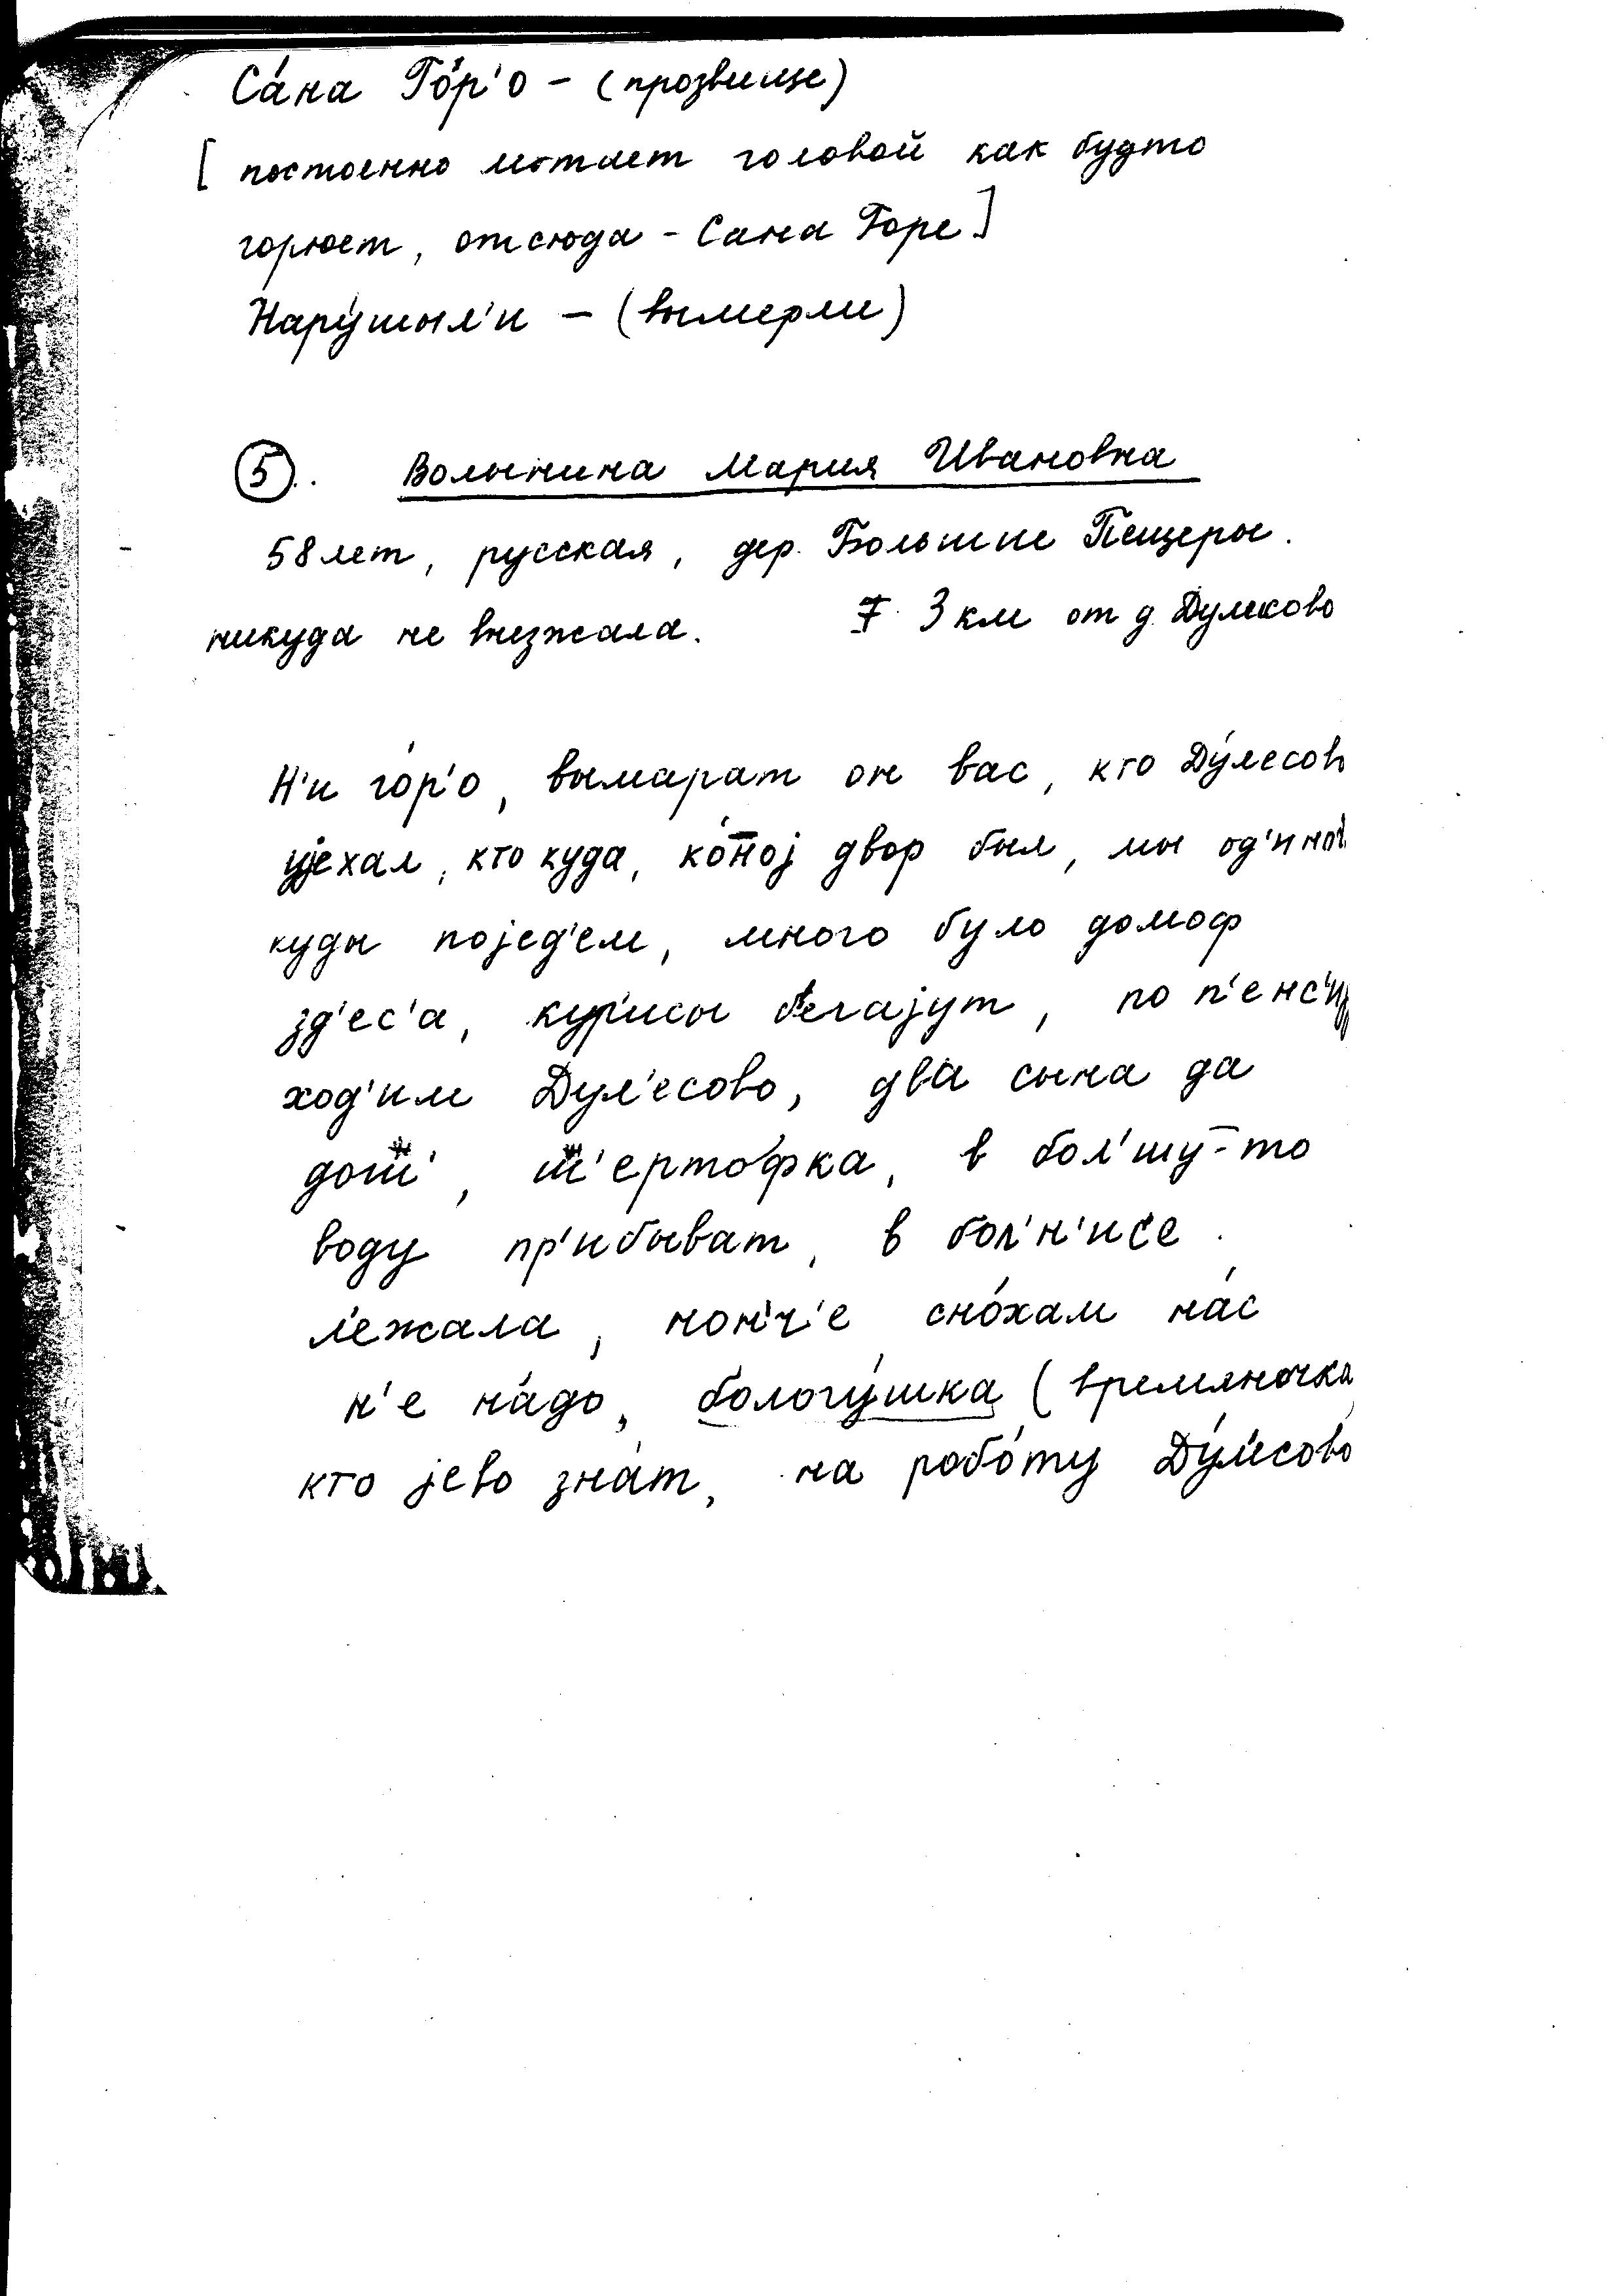 Са́на Го́р'о – (прозвище)
[ постоенно мотает головой как будто
горюет, отсюда – Сана Горе]
Нару́шыл'и – (вымерли)
5. Волынина Мария Ивановна
58 лет, русская, дер. Большие Пещеры.
никуда не выезжала. 3 км от д. Думково
Н'и го́р'о, вымарат он вас, кто Ду́лесов
ујехал, кто куда, двор был, мы
куды појед'ем, много було домоф
зд'ес'а, кур'исы бегајут, по
ход'им Дул'есово, два сына да
в бол'шу-то
воду пр'ибыват, в бол'н'ис'е.
л'ежала, нон'ч'е сно́хам на́с
н'е на́до, бологу́шка (времяночка
кто јево зна́т, на робо́ту Ду́л'есово